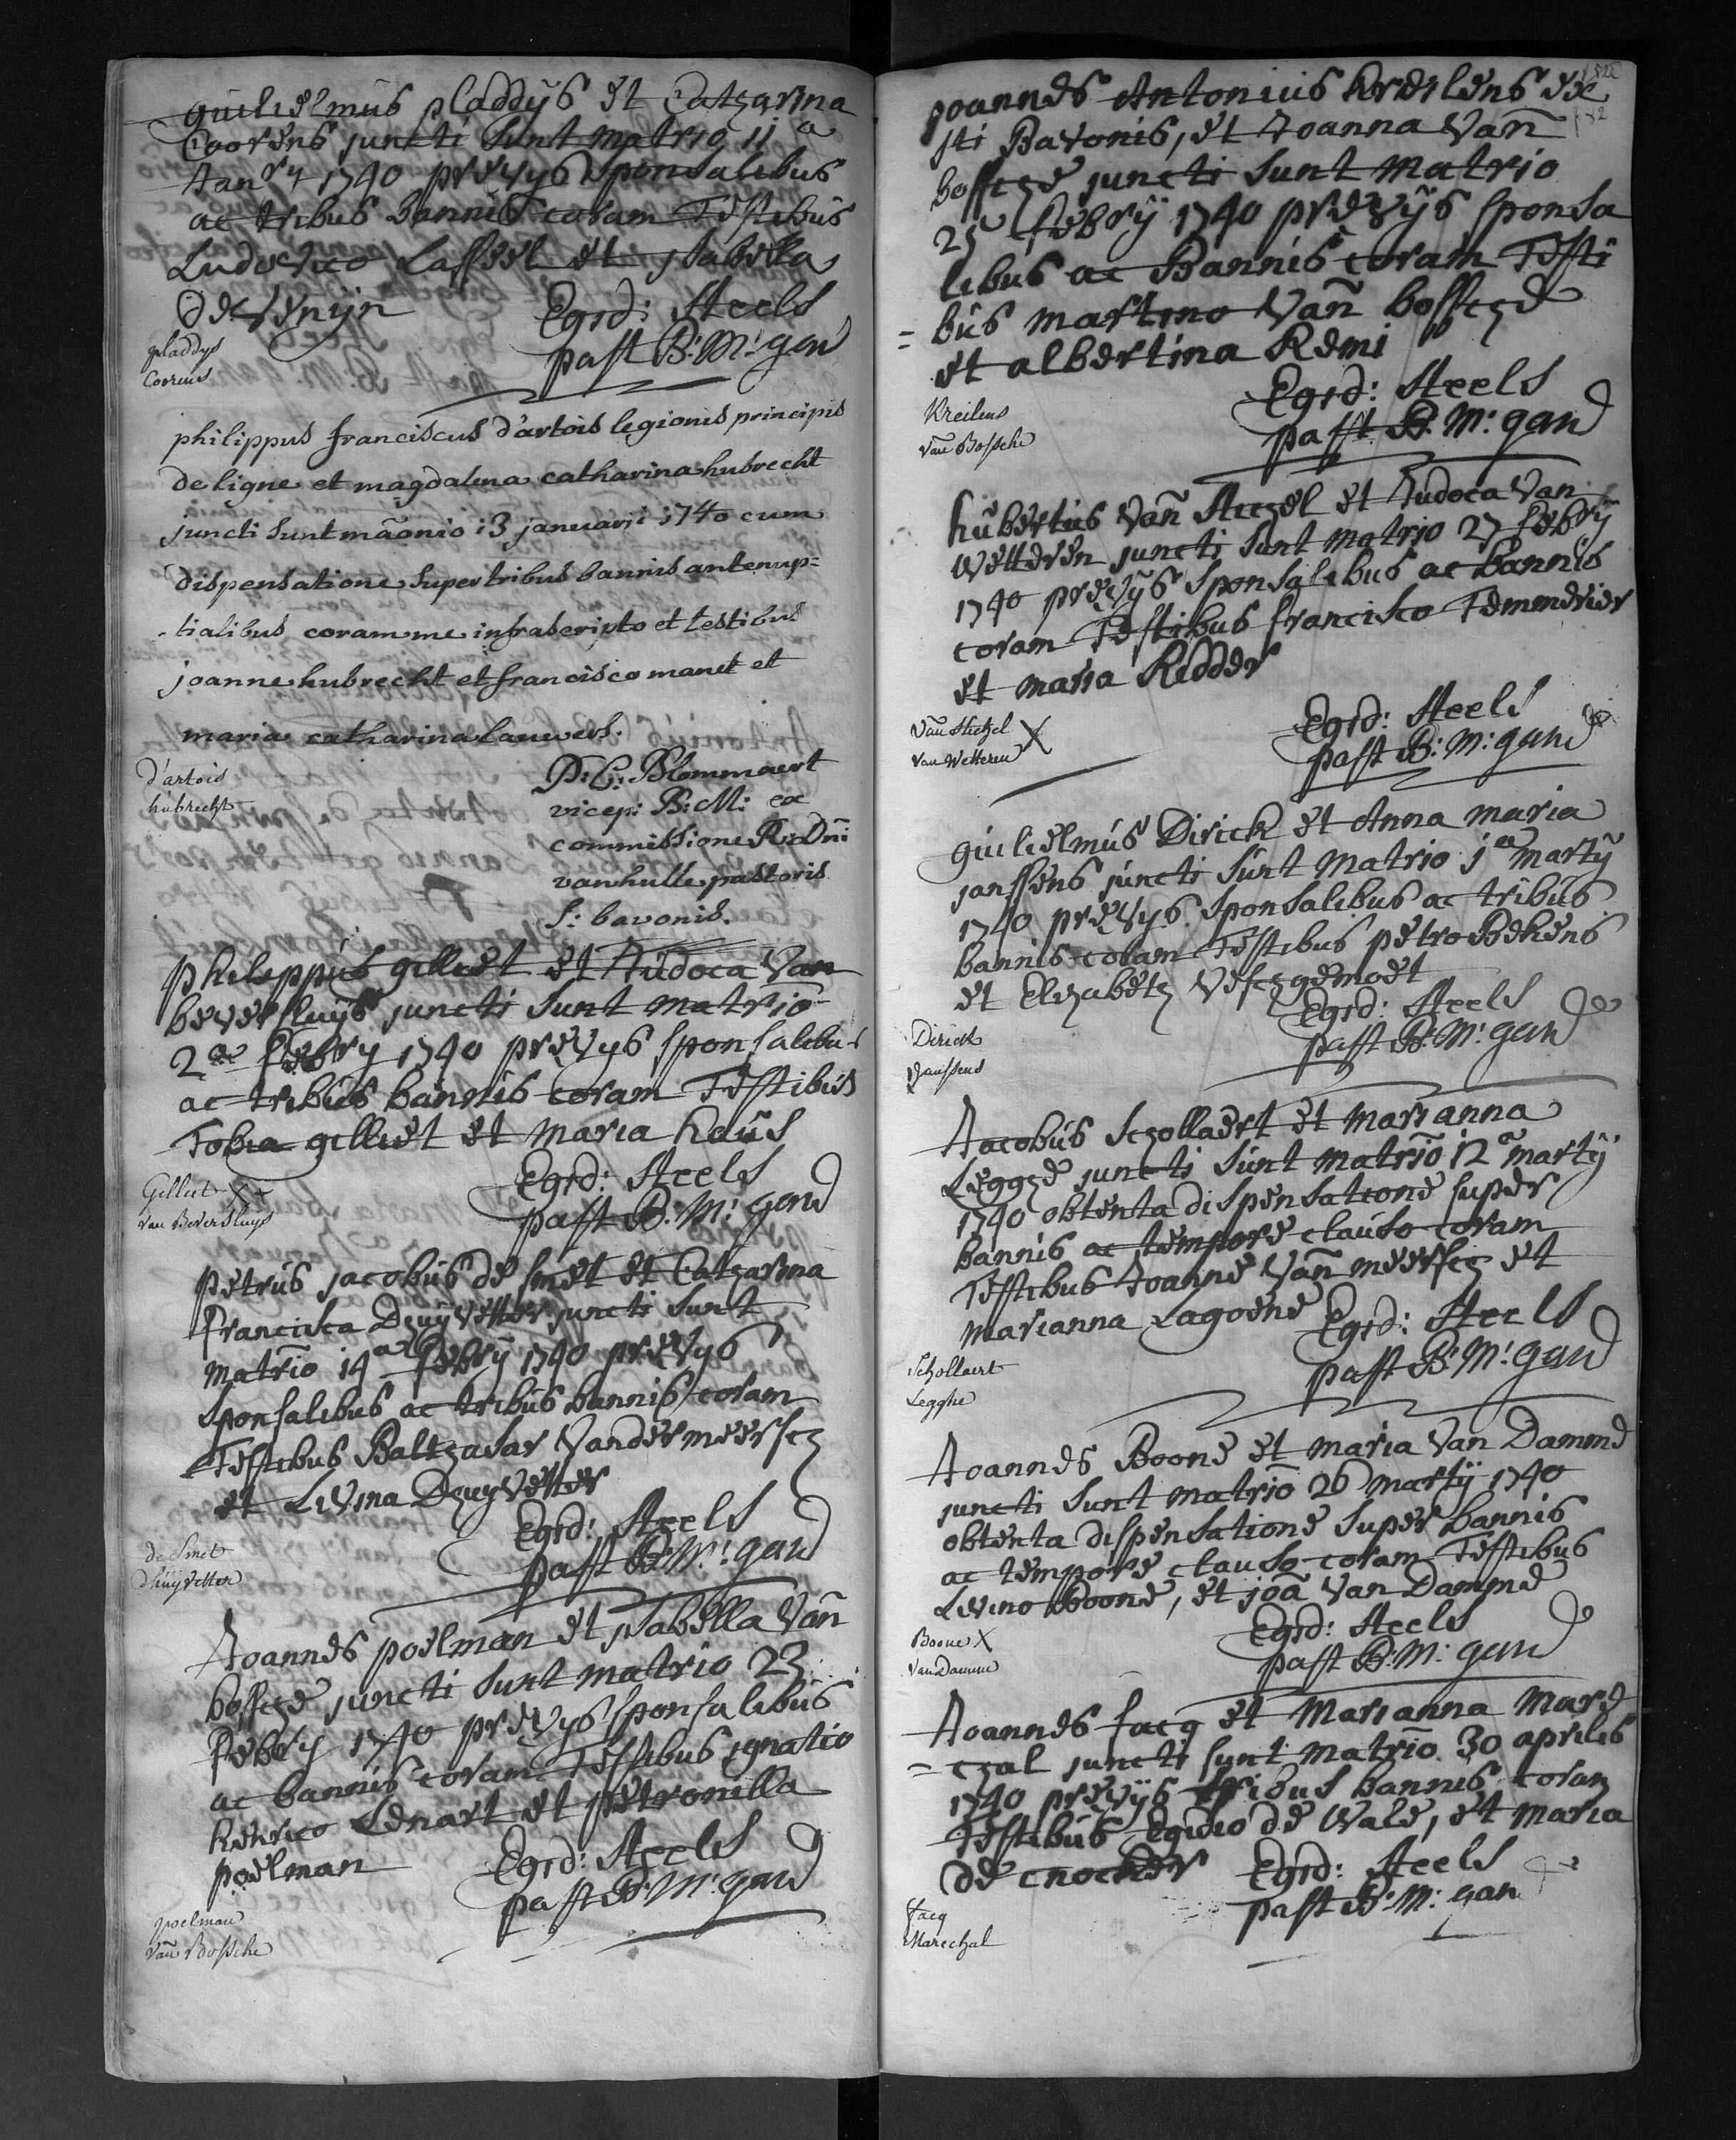 guilielmus pladdys et Catharina
Coorens juncti sunt matrio 11a
Janry 1740 prevys sponsalibus
ac tribus bannis coram Testibus
Ludovico Lasseel et jsabella
pladdys
Coorens
Egid: Steels
past B: M: gand
philippus franciscus d'artois legionis principis
de ligne et magdalena catharina hubrecht
juncti sunt mãonio 13 januarii 1740 cum
dispensatione super tribus bannis antenup=
-tialibus coram me infrascripto et testibus
joanne hubrecht et francisco manet et
maria catharina lauwers.
d'artois
hubrecht
P: C: Blommaert
vicep: B: M: ex
commissione R: Dni
vanhulle pastoris
S: bavonis.
philippus gilliet et Judoca Van
beversluys juncti sunt matrio
2a Febry 1740 prevys sponsalibus
ac tribus bannis coram Testibus
Tobia gilliet et maria haus
Gilliet
van Beversluys
Egid: Steels
past B: M: gand
petrus jacobus de smet et Catharina
Francisca Dhuyvetter juncti sunt
matrio 14a febry 1740 prevys
sponsalibus ac tribus bannis coram
Testibus Balthasar Vandermeersch
et Livina Dhuyvetter
de Smet
dhuyvetter
Egid: Steels
past B: M: gand
Joannes poelman et jsabella Van
bossche juncti sunt matrio 23
Febry 1740 prevys sponsalibus
ac bannis coram Testibus ignatio
Lenart et petronilla
poelman
poelman
van Bossche
Egid: Steels
past B: M: gand
Joannes Antonius kreilens ex
sti Bavonis, et Joanna Van
bossche juncti sunt matrio
25 febry 1740 prevys sponsa
libus ac Bannis coram Testi
=bus martino Van bossche
et albertina Remi
Kreilens
van Bossche
Egid: Steels
past B: M: gand
hubertus Van Stichel et Judoca Van
Wetteren juncti sunt matrio 27 febry
1740 prevys sponsalibus ac bannis
coram Testibus francisco Temmerier
et maria Ridder
van Stichel X
van Wetteren
Egid: Steels
past B: M: gand
guilielmus Dirick et Anna maria
janssens juncti sunt matrio 1a marty
1740 prevys sponsalibus ac tribus
bannis coram Testibus petro Bekens
et Elizabeth Veschgemoet
Dirick
Janssens
Egid: Steels
past B: M: gand
Jacobus Schollaert et marianna
Legghe juncti sunt matrio 12a marty
1740 obtenta dispensatione super
bannis ac tempore clauso coram
Testibus Joanne Van meersch et
marianna Lagoene
Schollaert
Legghe
Egid: Steels
past B: M: gand
Joannes Boone et maria Van Damme
juncti sunt matrio 26 marty 1740
obtenta dispensatione super bannis
ac tempore clauso coram Testibus
Livino Boone, et joa Van Damme
Boone X
van Damme
Egid: Steels
past B: M: gand
Joannes facq et Marianna Mare
=chal juncti sunt matrio 30 aprilis
1740 prevys tribus bannis coram
Testibus Egidio de Wale, et maria
de cnocker
facq
Marechal
Egid: Steels
past B: M: gan